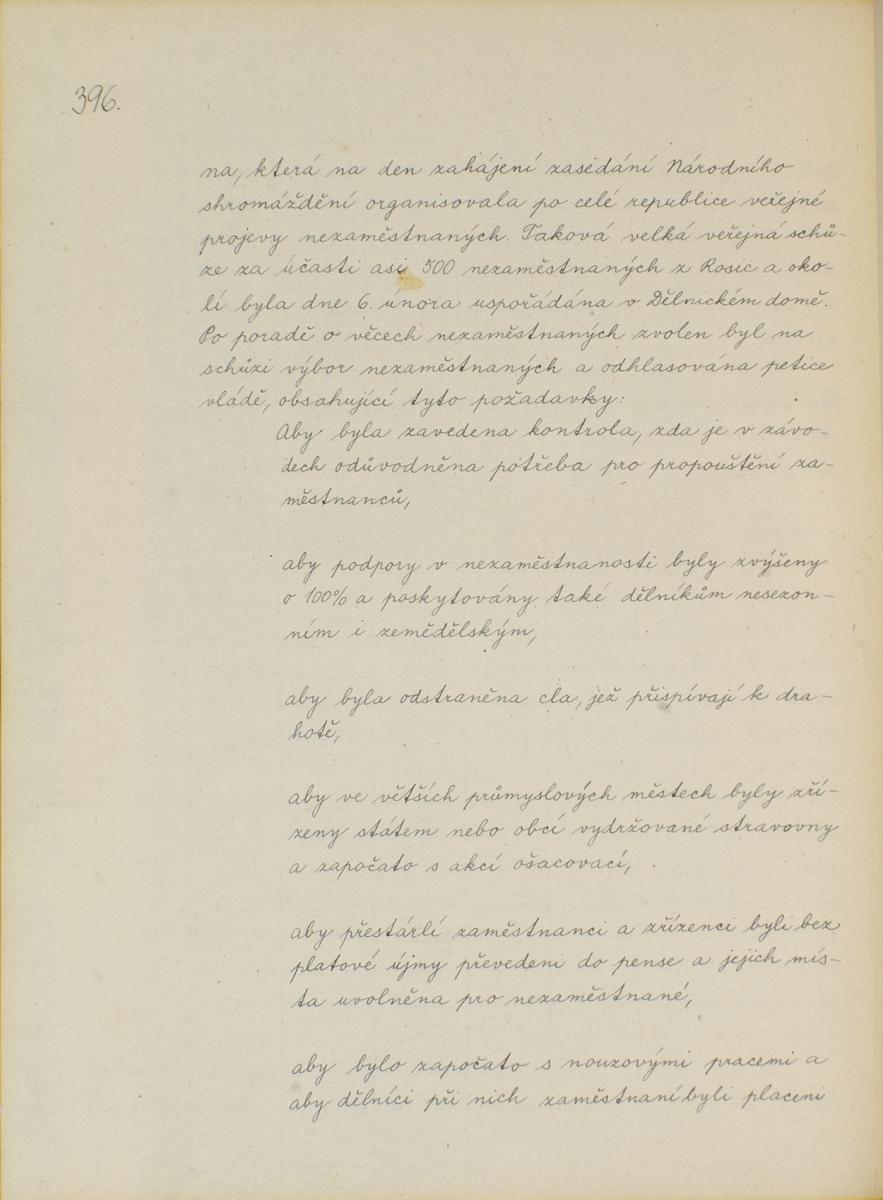 396.
na, která na den zahájení zasedání Národního
shromáždění organisovala po celé republice veřejné
projevy nezaměstnaných. Taková velká veřejná schů-
ze za účasti asi 500 nezaměstnaných z Rosic a oko-
lí byla dne 6. února uspořádána v Dělnickém domě.
Po poradě o věcech nezaměstnaných zvolen byl na
schůzi výbor nezaměstnaných a odhlasována petice
vládě, obsahující tyto požadavky:
Aby byla zavedena kontrola, zda je v závo-
dech odůvodněna potřeba pro propouštění za-
městnanců,
aby podpory v nezaměstnanosti byly zvýšeny
o 100% a poskytovány také dělníkům nesezon-
ním i zemědělským,
aby byla odstraněna cla, jež přispívají k dra-
hotě,
aby ve větších průmyslových městech byly zří-
zeny státem nebo obcí vydržované stravovny
a započato s akcí ošacovací,
aby přestárlí zaměstnanci a zřízenci byli bez
platové újmy převedeni do pense a jejich mís-
ta uvolněna pro nezaměstnané,
aby bylo započato s nouzovými pracemi a
aby dělníci při nich zaměstnaní byli placeni